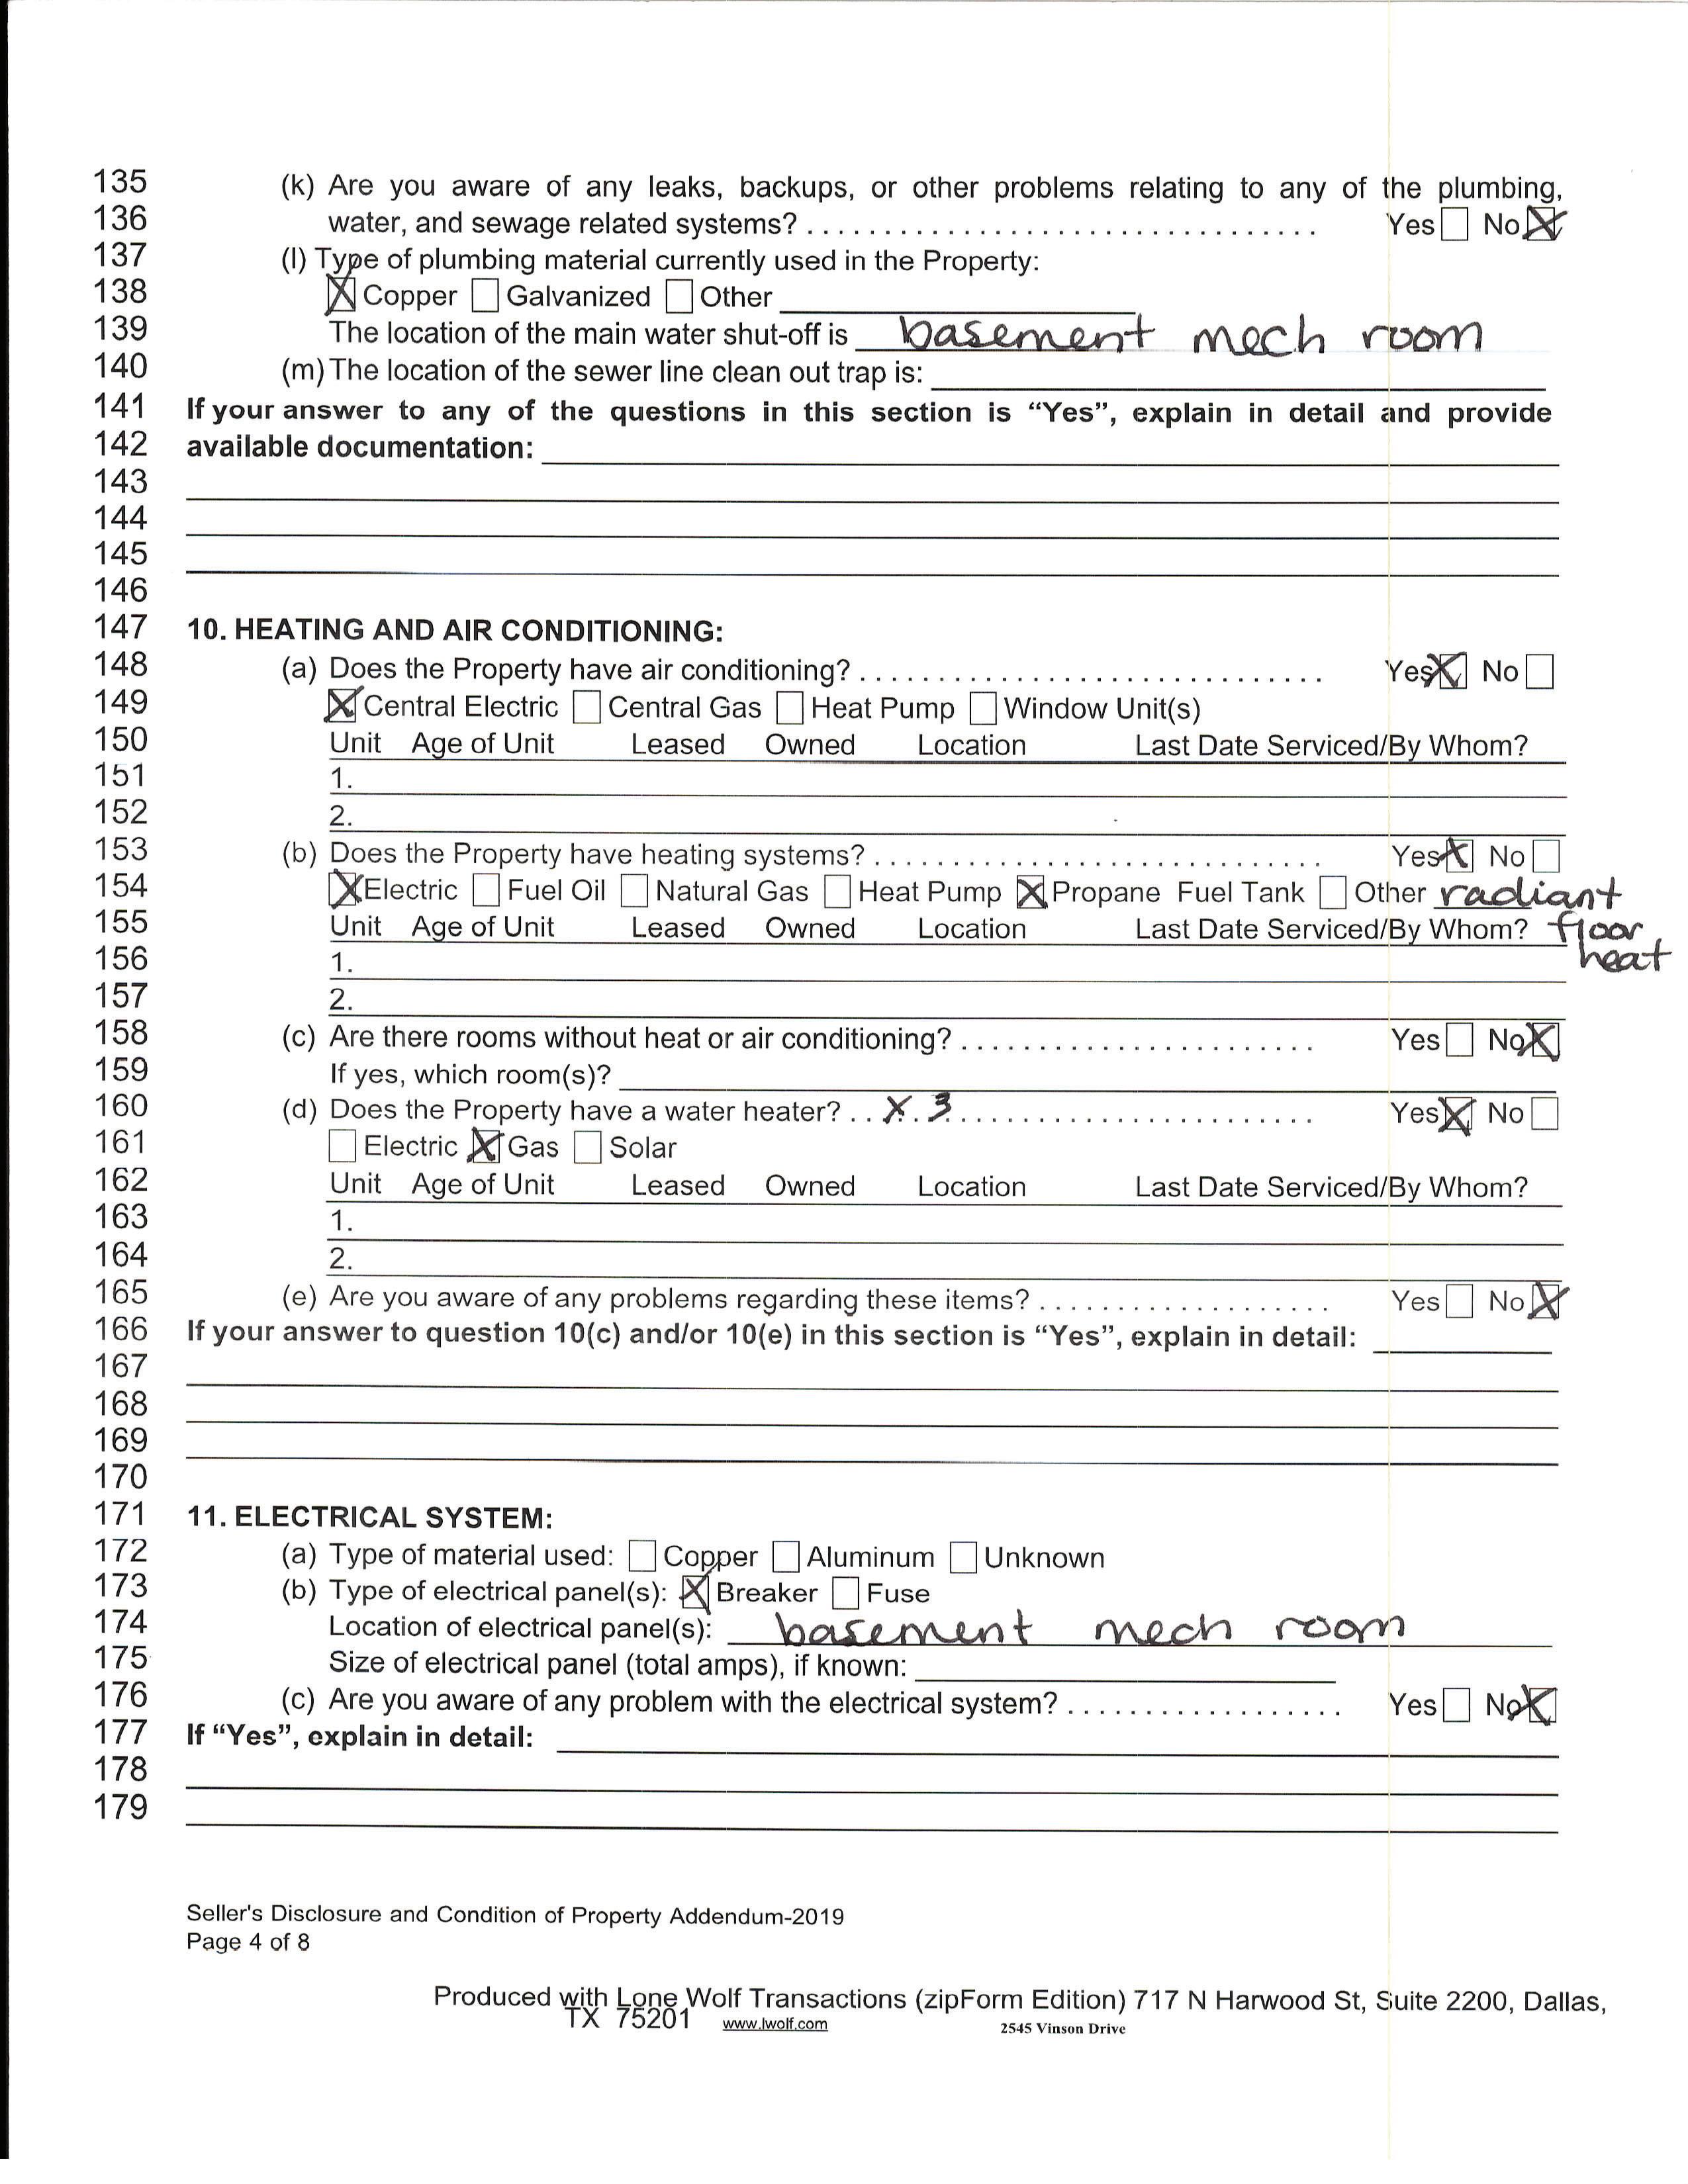 135 (k) Are you aware of any leaks, backups, or other problems relating to any of the plumbing,
136 water, and sewage related systems? . . . . . . . . . . . . . . . . . . . . . . . . . . . . . . . . Yes☐ No☒
137 (l) Type of plumbing material currently used in the Property:
138 ☒ Copper ☐ Galvanized ☐ Other
139 The location of the main water shut-off is basement mech room
140 (m) The location of the sewer line clean out trap is:
141 If your answer to any of the questions in this section is “Yes”, explain in detail and provide
142 available documentation:
143
144
145
146
147 10. HEATING AND AIR CONDITIONING:
148 (a) Does the Property have air conditioning? . . . . . . . . . . . . . . . . . . . . . . . . . . . . . Yes☒ No☐
149 ☒ Central Electric ☐ Central Gas ☐ Heat Pump ☐ Window Unit(s)
150 Unit Age of Unit Leased Owned Location Last Date Serviced/By Whom?
151 1.
152 2.
153 (b) Does the Property have heating systems? . . . . . . . . . . . . . . . . . . . . . . . . . . . . Yes☒ No☐
154 ☒ Electric ☐ Fuel Oil ☐ Natural Gas ☐ Heat Pump ☒ Propane Fuel Tank ☐ Other radiant
155 Unit Age of Unit Leased Owned Location Last Date Serviced/By Whom? floor
156 1. heat
157 2.
158 (c) Are there rooms without heat or air conditioning? . . . . . . . . . . . . . . . . . . . . . . Yes☐ No☒
159 If yes, which room(s)?
160 (d) Does the Property have a water heater? . . X 3 . . . . . . . . . . . . . . . . . . . . . . . Yes☒ No☐
161 ☐ Electric ☒ Gas ☐ Solar
162 Unit Age of Unit Leased Owned Location Last Date Serviced/By Whom?
163 1.
164 2.
165 (e) Are you aware of any problems regarding these items? . . . . . . . . . . . . . . . . . . Yes☐ No☒
166 If your answer to question 10(c) and/or 10(e) in this section is “Yes”, explain in detail:
167
168
169
170
171 11. ELECTRICAL SYSTEM:
172 (a) Type of material used: ☐ Copper ☐ Aluminum ☐ Unknown
173 (b) Type of electrical panel(s): ☒ Breaker ☐ Fuse
174 Location of electrical panel(s): basement mech room
175 Size of electrical panel (total amps), if known:
176 (c) Are you aware of any problem with the electrical system? . . . . . . . . . . . . . . . . . Yes☐ No☒
177 If “Yes”, explain in detail:
178
179
Seller's Disclosure and Condition of Property Addendum-2019
Page 4 of 8
Produced with Lone Wolf Transactions (zipForm Edition) 717 N Harwood St, Suite 2200, Dallas,
TX 75201 www.lwolf.com 2545 Vinson Drive